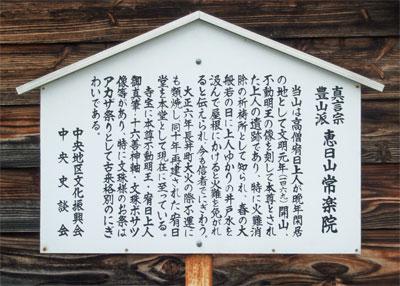 真言宗
豊山派
恵日山 常楽院
当山は高僧宥日上人が晩年閑居
の地として文明元年(一四六九)開山、
不動明王の像を刻して本尊とされ
た上人の遺跡であり、特に火難消
除の祈祷所として知られ、春の大
般若の日に上人ゆかりの井戸水を
汲んで屋根にかけると火難を免がれ
ると伝えられ、今も信者でにぎわう。
大正六年長井町大火の際不運に
も類焼し、同十年再建された宥日
堂を本堂として現在に至っている。
寺宝に本尊不動明王・宥日上人
御直筆・十六善神軸・文珠ボサツ
像等があり、特に文珠様のお祭は
アカザ祭りとして古来格別のにぎ
わいである。
中央地区文化振興会
中央史談会